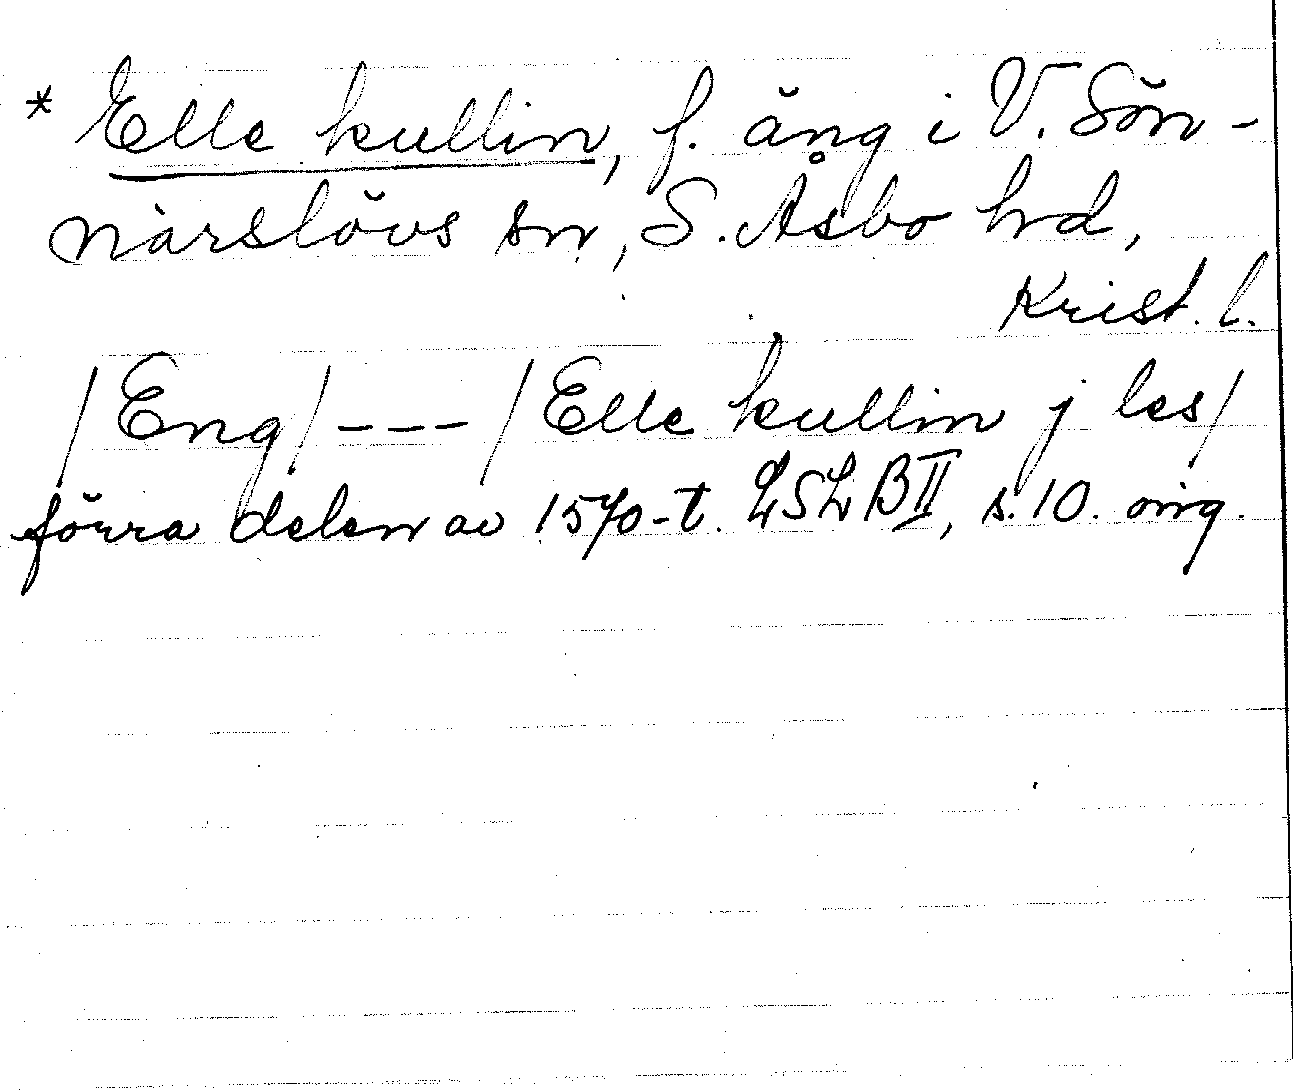 * Elle kullin, f. äng i V. Sön-
närslövs sn, S. Åsbo hd,
Krist. l.
/Eng/ --- /Elle kullin j les/
förra delen av 1570-t. LSLB II, s. 10. orig.